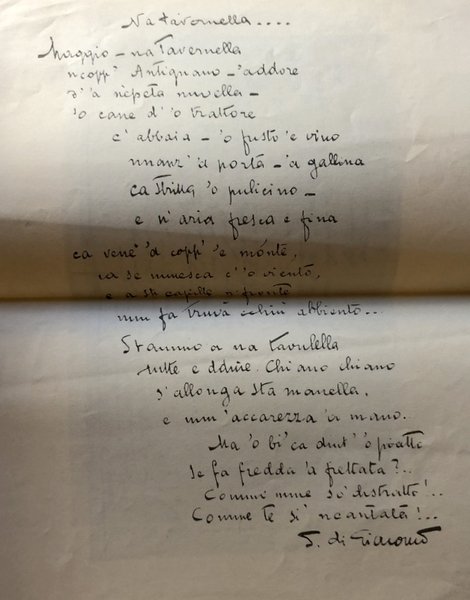 Na tavernella....
Maggio – na Tavernella
ncopp' Antignano – 'addore
d' 'a nepeta nuvella –
'o cane d' 'o trattore
c' abbaia – 'o fusto 'e vino
nnanz' 'a porta – 'a gallina
ca strilla 'o pulicino –
e n'aria fresca e fina
ca vene 'a copp' 'e monte,
ca se mmesca c' 'o viento,
e a sti capille nfronte
nun fa truvà cchiù abbiento...
Stammo a na tavulella
tutte e dduie. Chiano chiano
s'allonga sta manella,
e mm'accarezza 'a mano..
Ma 'o bi' ca dint' 'o piatto
se fa fredda 'a frettata?..
Comme mme so' distratto!..
Comme te si' ncantata!..
S. di Giacomo